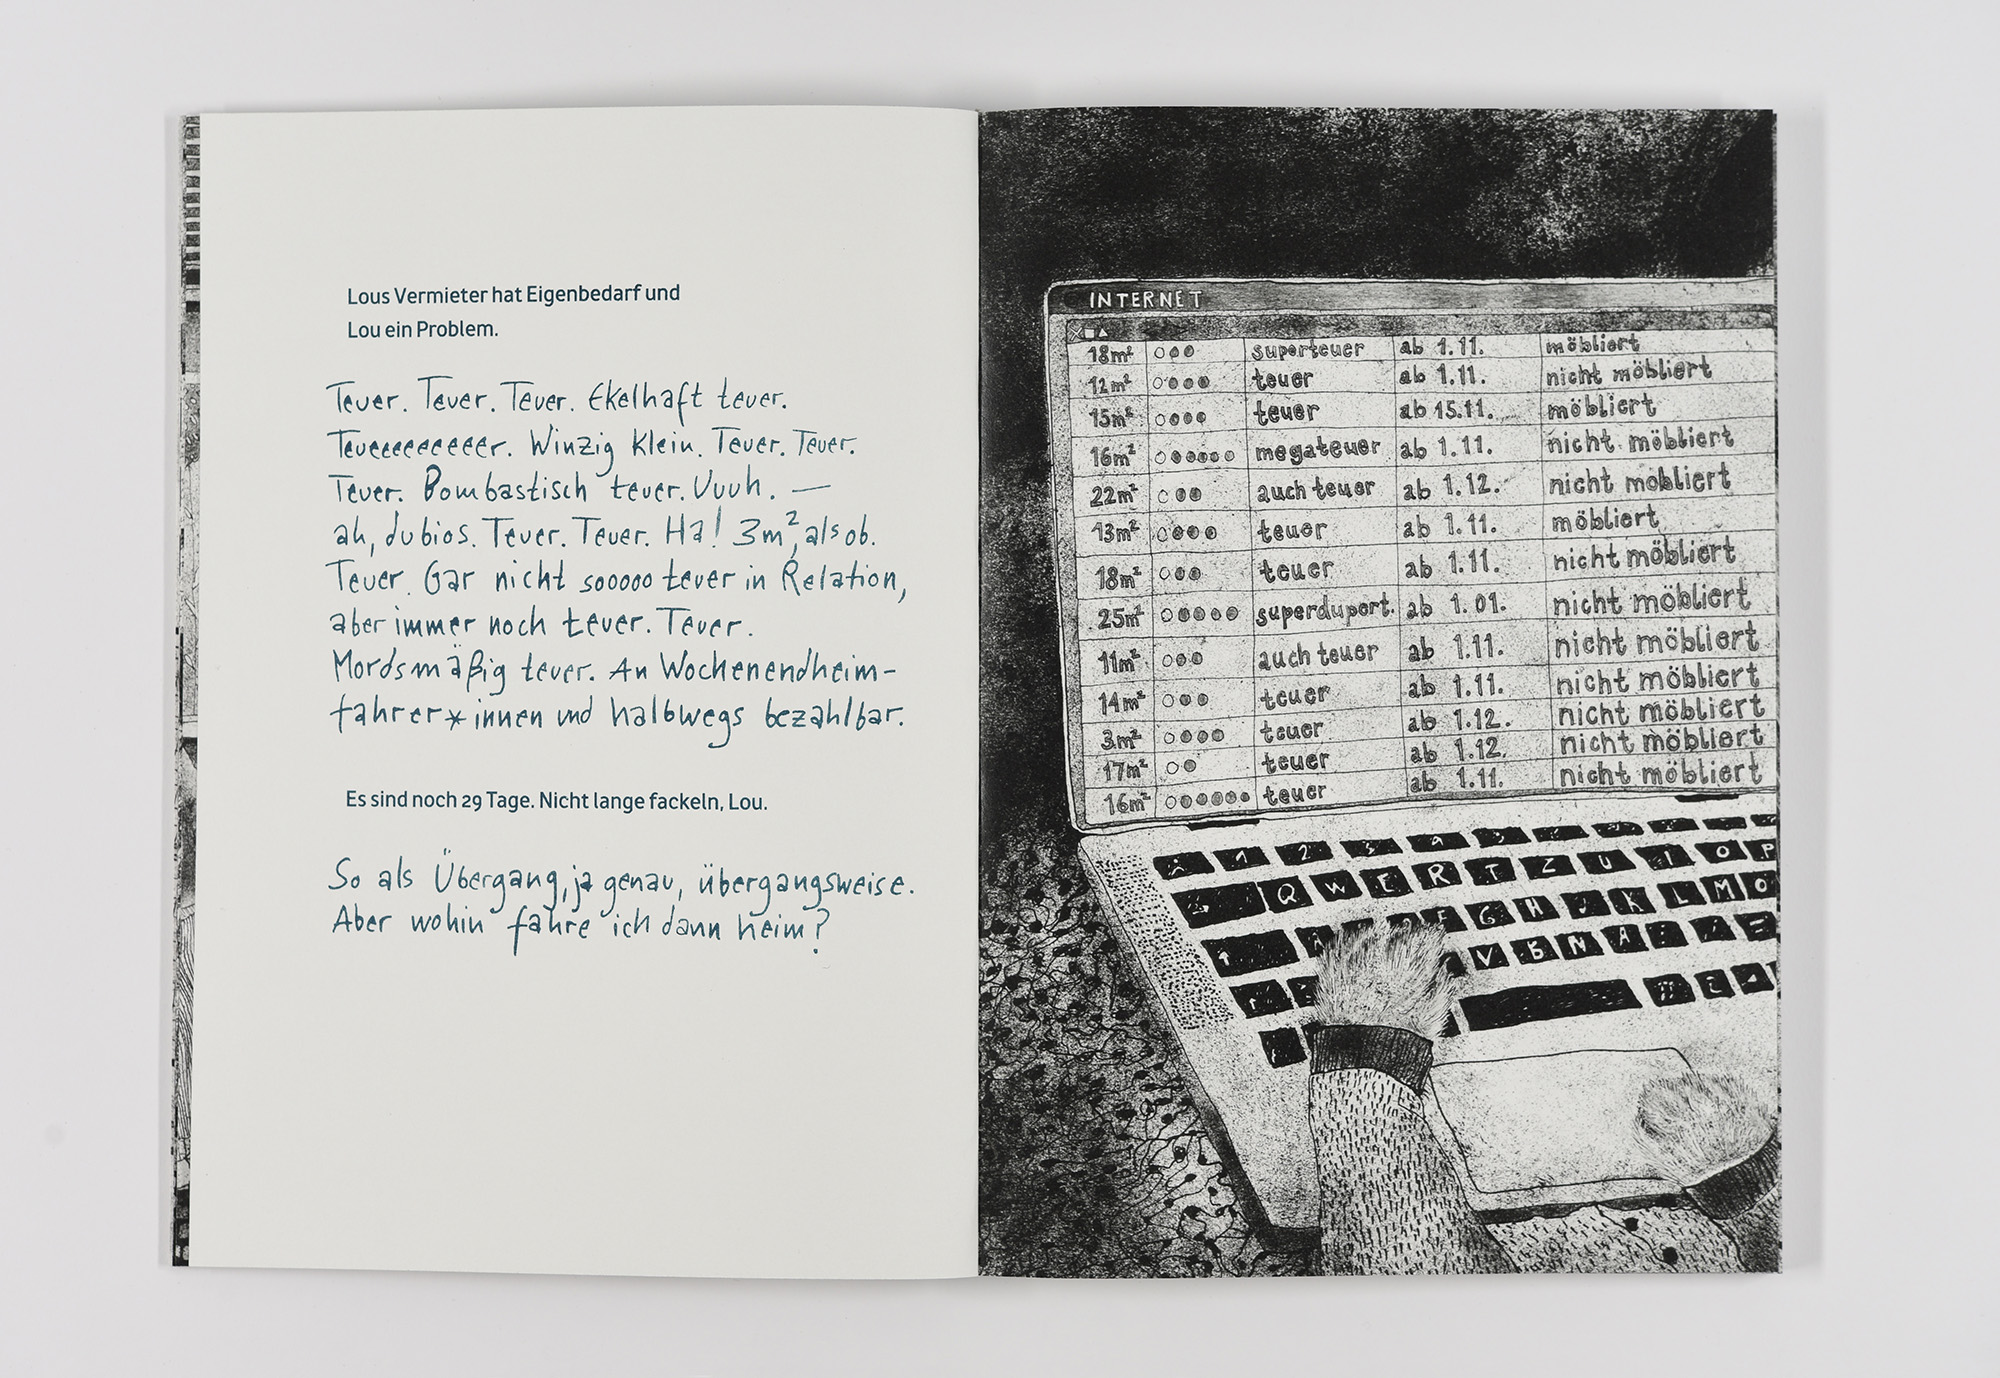 Lous Vermieter hat Eigenbedarf und
Lou ein Problem.
Teuer. Teuer. Teuer. Ekelhaft teuer.
Teueeeeeeeeer. Winzig klein. Teuer. Teuer.
Teuer. Bombastisch teuer. Uuuh. —
ah, dubios. Teuer. Teuer. Ha! 3m², als ob.
Teuer. Gar nicht sooooo teuer in Relation,
aber immer noch teuer. Teuer.
Mordsmäßig teuer. An Wochenendheim-
fahrer*innen und halbwegs bezahlbar.
Es sind noch 29 Tage. Nicht lange fackeln, Lou.
So als Übergang, ja genau, übergangsweise.
Aber wohin fahre ich dann heim?
INTERNET
18m² superteuer ab 1.11. möbliert
12m² teuer ab 1.11. nicht möbliert
15m² teuer ab 15.11. möbliert
16m² megateuer ab 1.11. nicht möbliert
22m² auch teuer ab 1.12. nicht möbliert
13m² teuer ab 1.11. möbliert
18m² teuer ab 1.11. nicht möbliert
25m² superdupert. ab 1.01. nicht möbliert
11m² auch teuer ab 1.11. nicht möbliert
14m² teuer ab 1.11. nicht möbliert
3m² teuer ab 1.12. nicht möbliert
17m² teuer ab 1.12. nicht möbliert
16m² teuer ab 1.11. nicht möbliert
1 2 3
Q W E R T Z U I O P
F G H J K L M O
V B N A